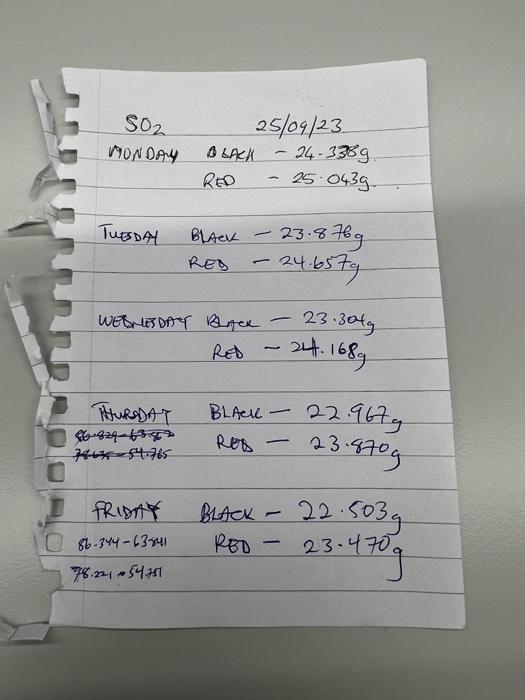 SO2 25/09/23
MONDAY BLACK - 24.338g
RED - 25.043g
TUESDAY BLACK - 23.876g
RED - 24.657g
WEDNESDAY BLACK - 23.304g
RED - 24.168g
THURSDAY BLACK - 22.967g
RED - 23.870g
FRIDAY BLACK - 22.503g
86.344 - 63.841 RED - 23.470g
78.221 - 54.751